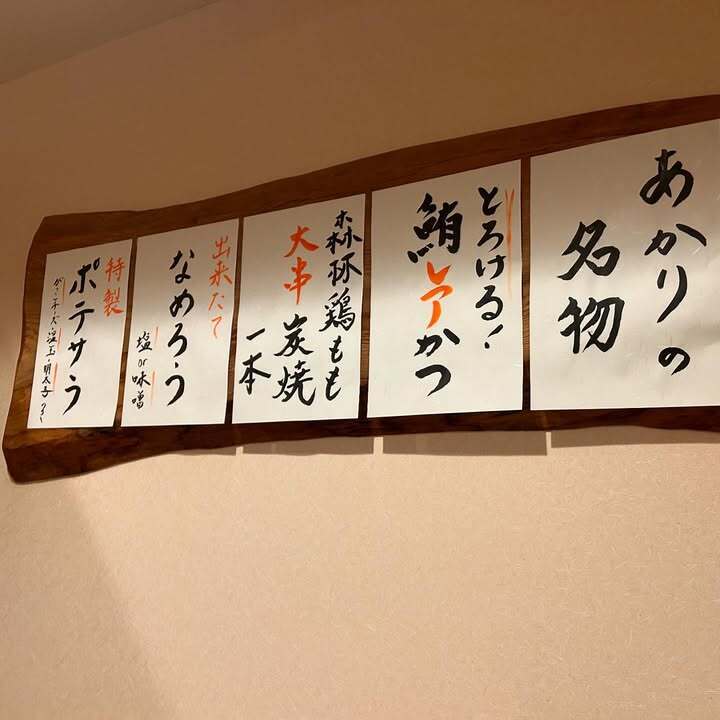 あかりの
名物
とろける!
鮪レアかつ
森林鶏もも
大串炭焼
一本
出来たて
なめろう
塩or味噌
特製
ポテサラ